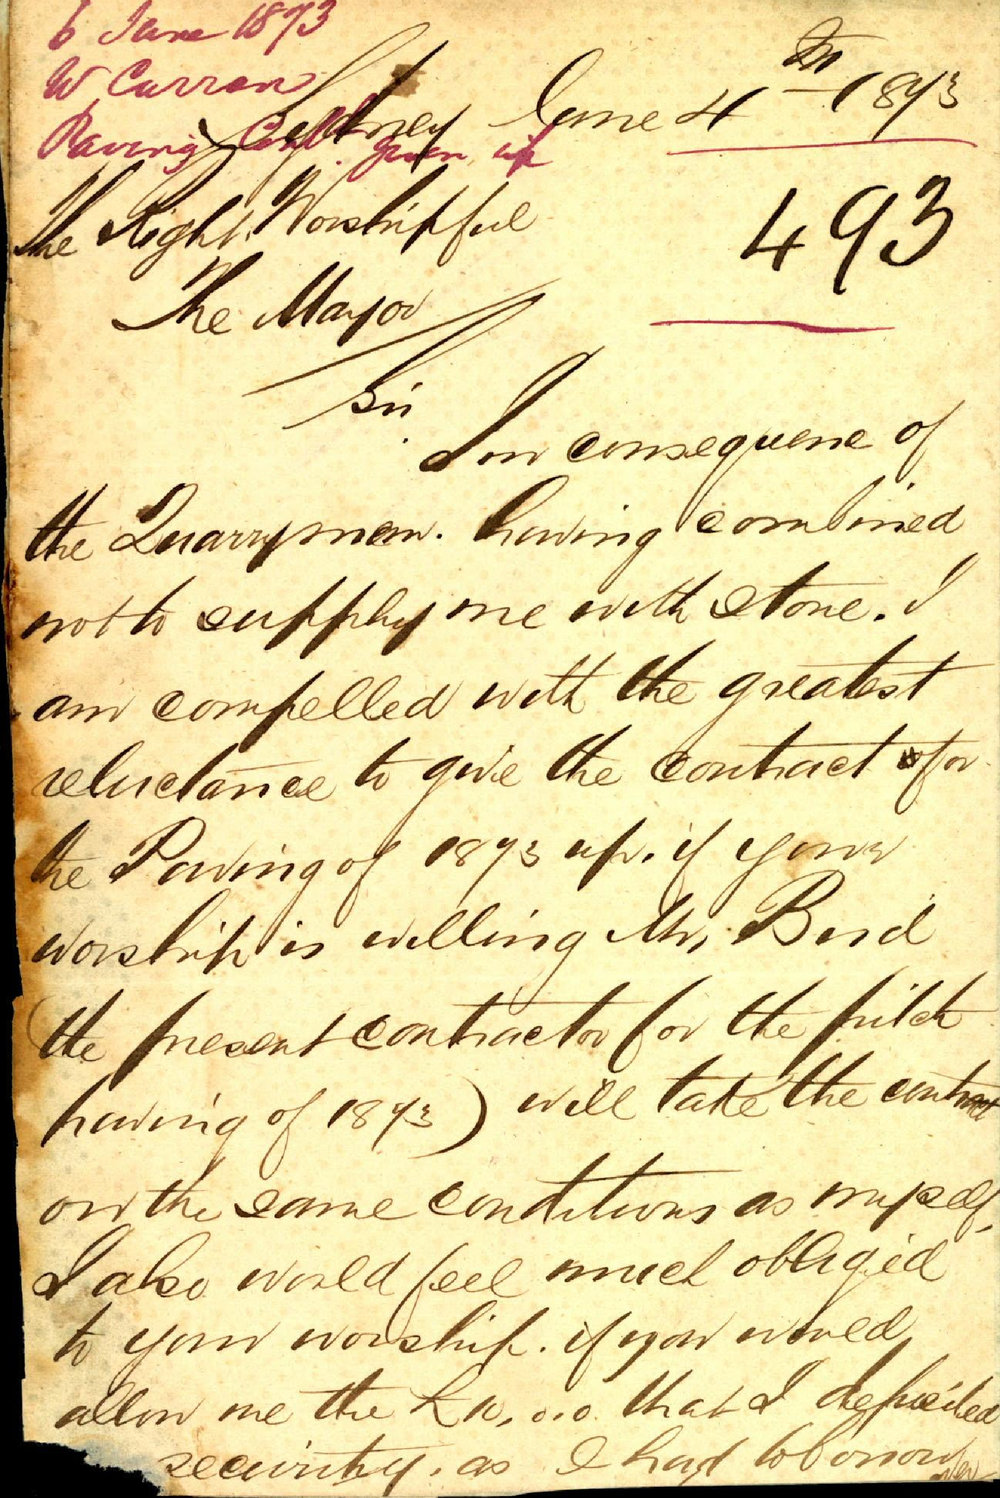 6 June 1873
W Curran
Paving Cont. given up
Sydney June 4th 1873
493
The Right Worshipful
The Mayor
Sir
In consequene of
the Quarrymen. having combined
not to supply me with stone. I
am compelled with the greatest
reluctance to give the contract for
the Paving of 1873 up. if your
worship is willing Mr, Burd
(the present contractor for the pitch
paving of 1873) will take the contract
on the same conditions as myself,
I also would feel much obliged
to your worship. if you would
allow me the £10,,0,,0 that I deposited
security. as I had to borrow